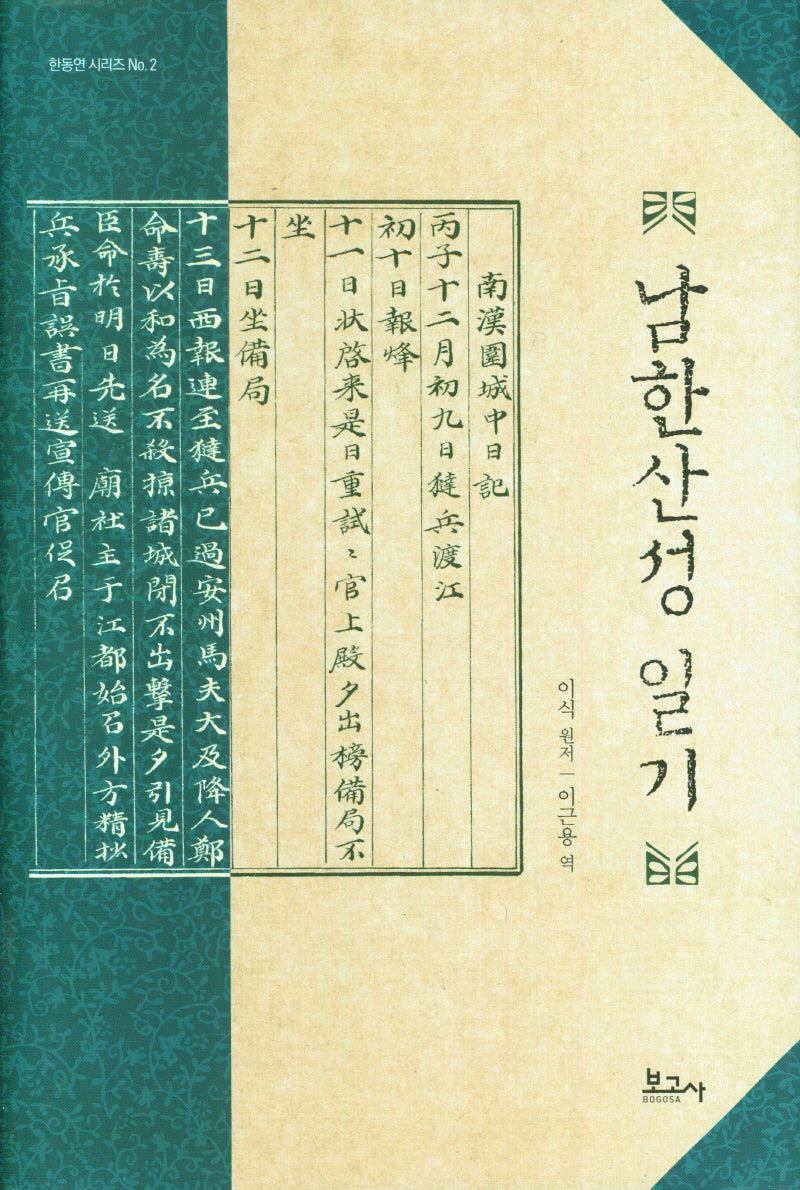 한동연 시리즈 No. 2
남한산성 일기
이식 원저 | 이근용 역
南漢圍城中日記
丙子十二月初九日㺚兵渡江
初十日報烽
十一日狀啓来是日重試〻官上殿夕出榜備局不
坐
十二日坐備局
十三日西報連至㺚兵已過安州馬夫大及降人鄭
命壽以和為名不殺掠諸城閉不出擊是夕引見備
臣命於明日先送 廟社主于江都始召外方精抄
兵承旨誤書再送宣傳官促召
보고사
BOGOSA